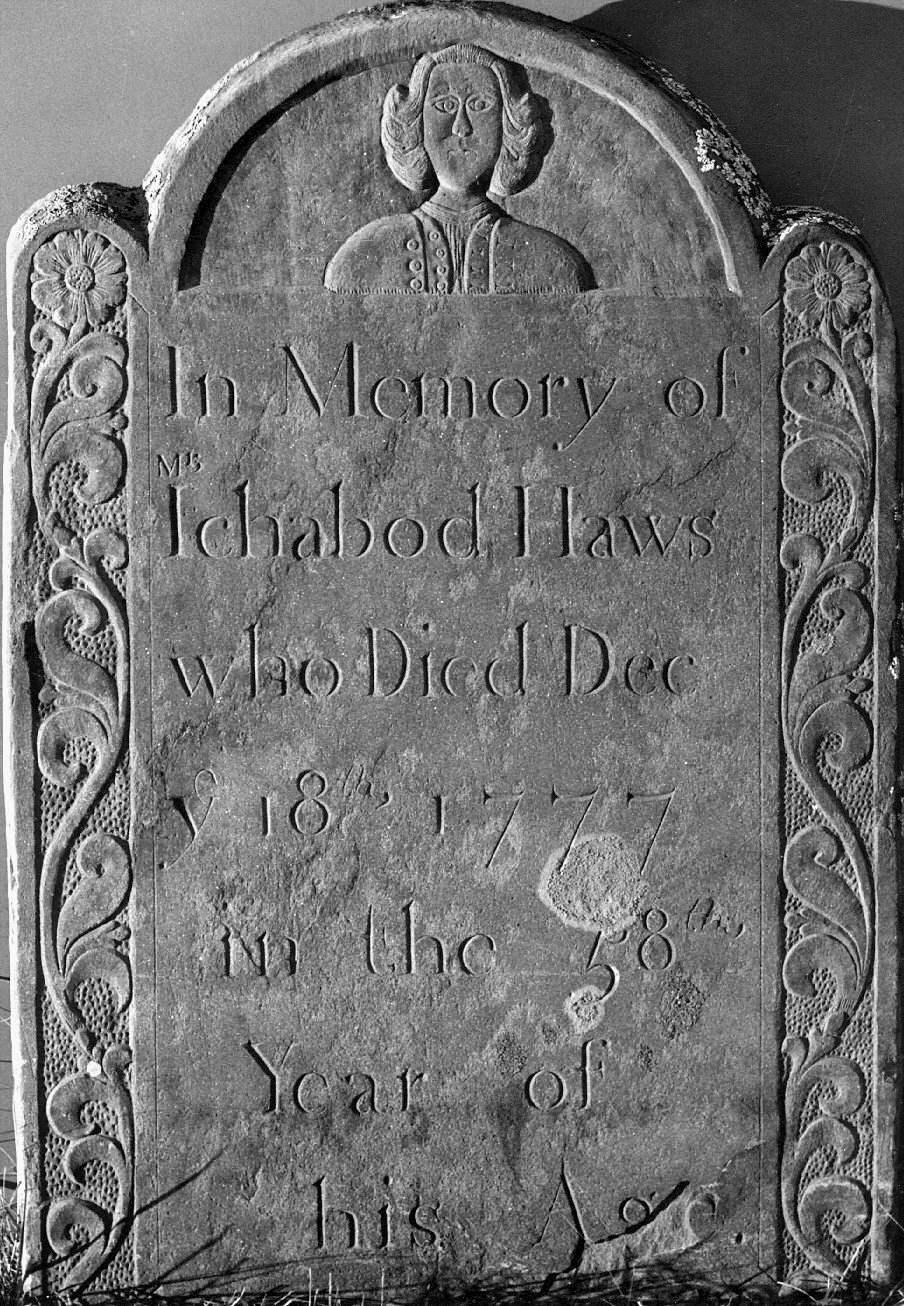 In Memory of
Mr
Ichabod Haws
who Died Dec
ye 18th, 1777
in the 58th,
Year of
his Age.